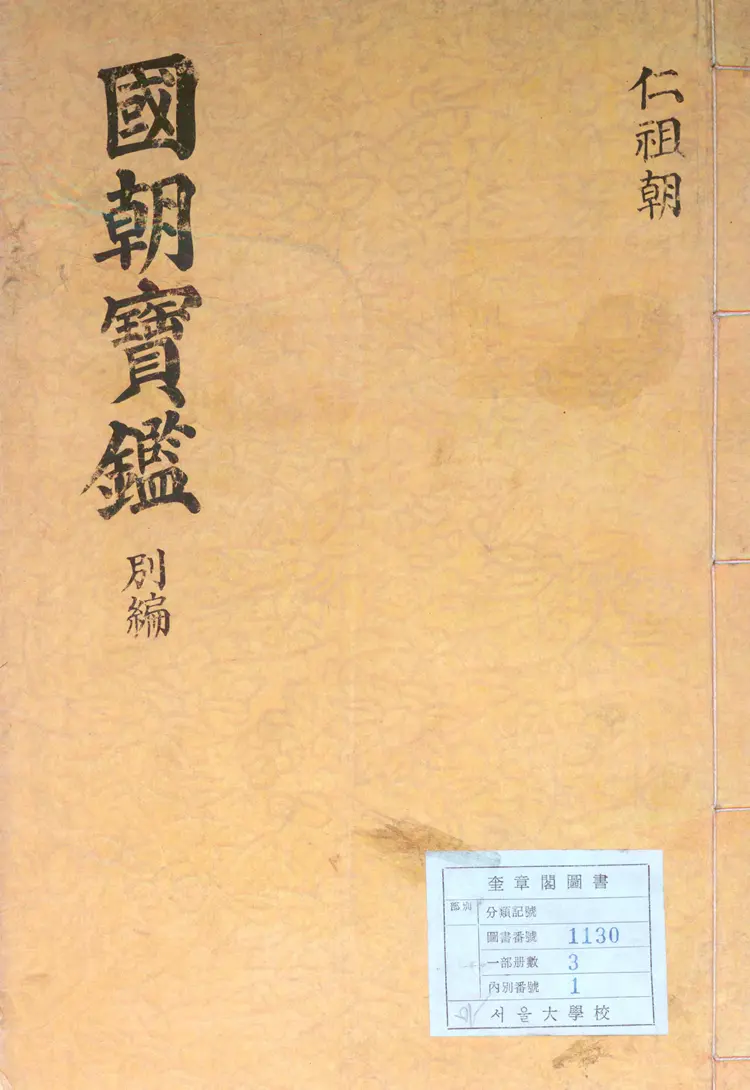 仁祖朝
國朝寶鑑
別編
奎章閣圖書
部別
分類記號
圖書番號 1130
一部册數 3
內別番號 1
서울大學校